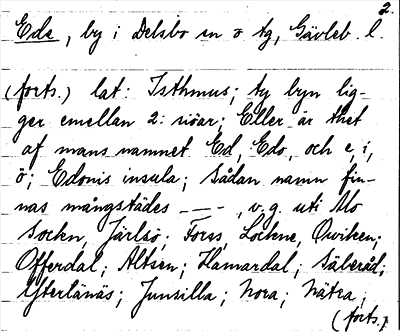 2.
Ede, by i Delsbo sn o tg, Gävleb. l.
(forts.) lat: Isthmus; ty byn lig-
ger emellan 2: siöar; Eller är thet
af mans namnet Ed, Edo, och e, i,
ö; Edonis insula; Sådan namn fin-
nas mångstädes _ _ _ , v.g. uti Alo
Sockn, Järlsö; Forss, Lockne, Owiken;
Offerdal; Altsen; Hamardal; Säberåd;
Ytterlänäs; Junsilla; Nora; Nätra;
(forts.)